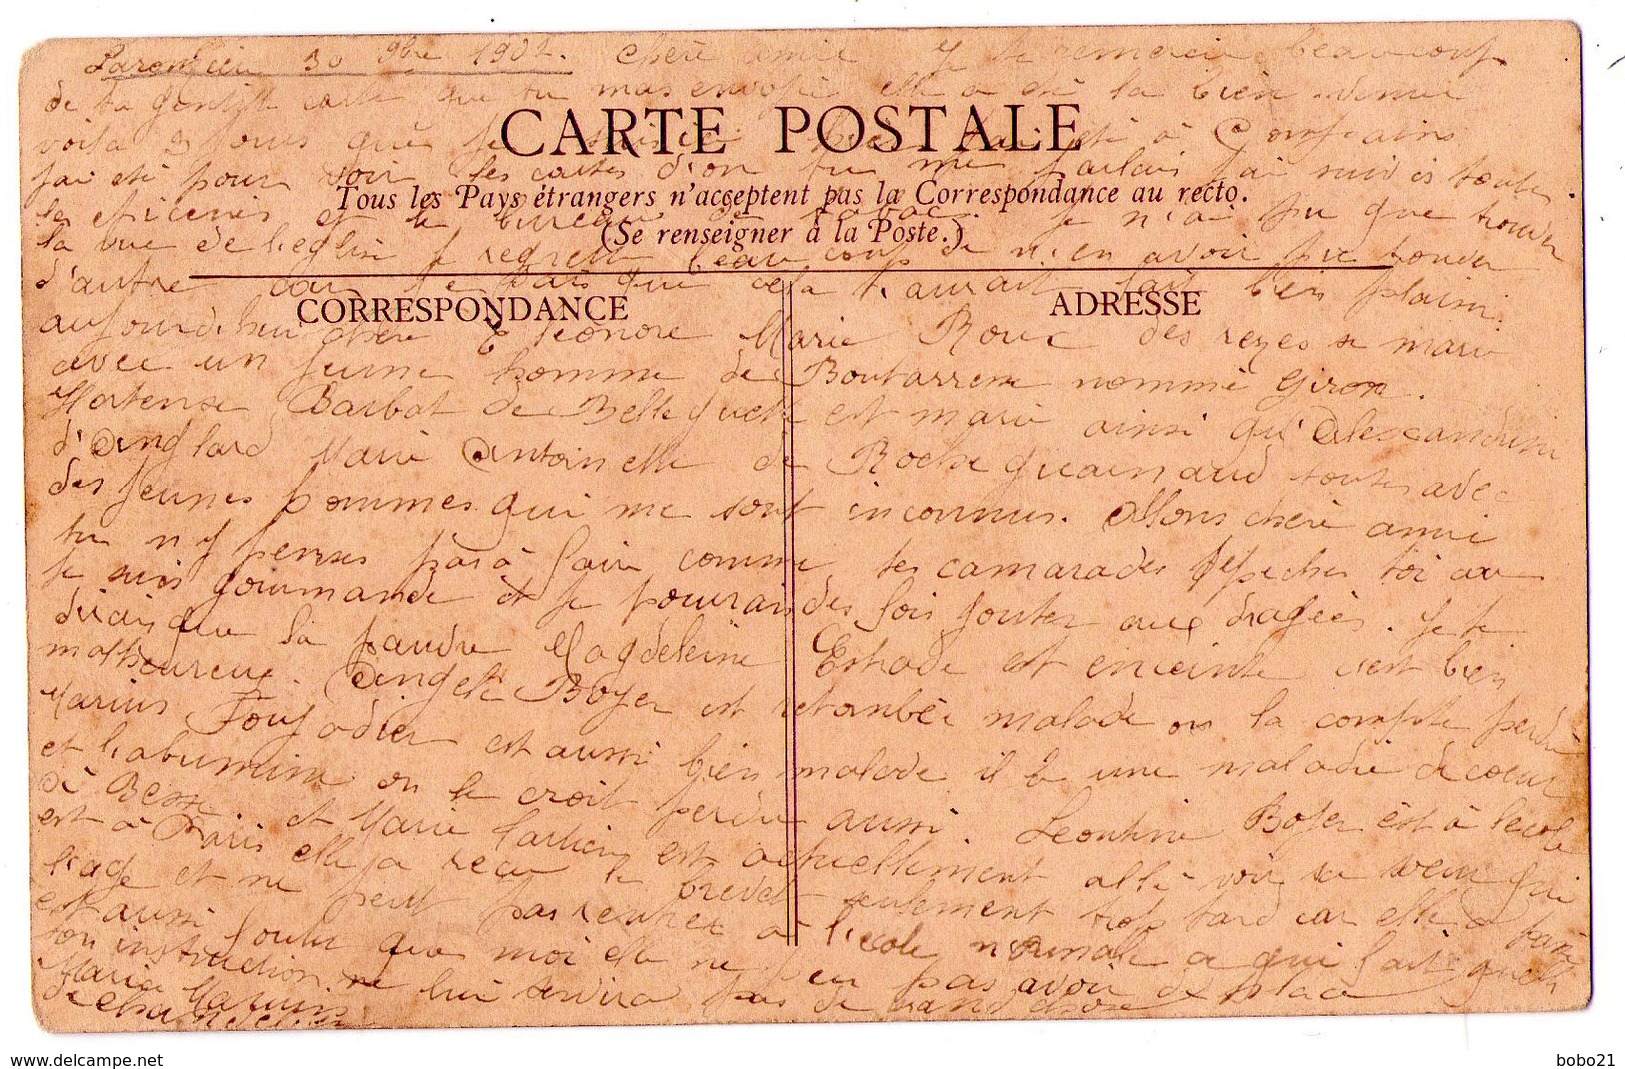 30 9bre 1902. Chère amie Je te remercie beaucoup
de ta gentille carte que tu mas envoyée elle a été la bien venue
CARTE POSTALE
voila 3 jours que je suis été à Compains
jai eté pour voir les cartes d'on tu me parlais jai suivis toutes
Tous les Pays étrangers n'acceptent pas la Correspondance au recto.
les epiceries et le bureau de tabac je n'ai pu que trouver
(Se renseigner à la Poste.)
la vue de l'eglise je regrette beaucoup de n'en avoir pu trouver
d'autre car je sais que cela t'aurait fait bien plaisir.
CORRESPONDANCE
ADRESSE
aujourd'hui chère Eleonore Marie Roux des se marie
avec un jeune homme de Boutaresse nommé Giron.
Hortense Barbat de Belleguette est marié ainsi qu'Alexandrine
d'Anglard Marie Antoinette de Roche toutes avec
des jeunes hommes qui me sont inconnus. Allons chère amie
tu n'y penses pas à faire comme tes camarades depeches toi car
je suis gourmande et je pourrais des fois gouter aux dragées. Je te
dirais que la pauvre Magdeleine Estrade est enceinte c'est bien
malheureux. Angele Boyer est retombée malade on la compte perdu
Marius Foujadier est aussi bien malade il a une maladie de coeur
et l'abumine on le croit perdu aussi. Leontine Boyer est à l'ecole
de Besse et Marie est actuellement allé voir sa soeur qui
est à Paris elle a reçu le brevet seulement trop tard car elle a passé
l'age et ne peut pas rentrer à l'école normale a qui fait quelle
est aussi que moi elle ne peu pas avoir de place
son instruction ne lui servira pas de grand chose
Maria
bobo21